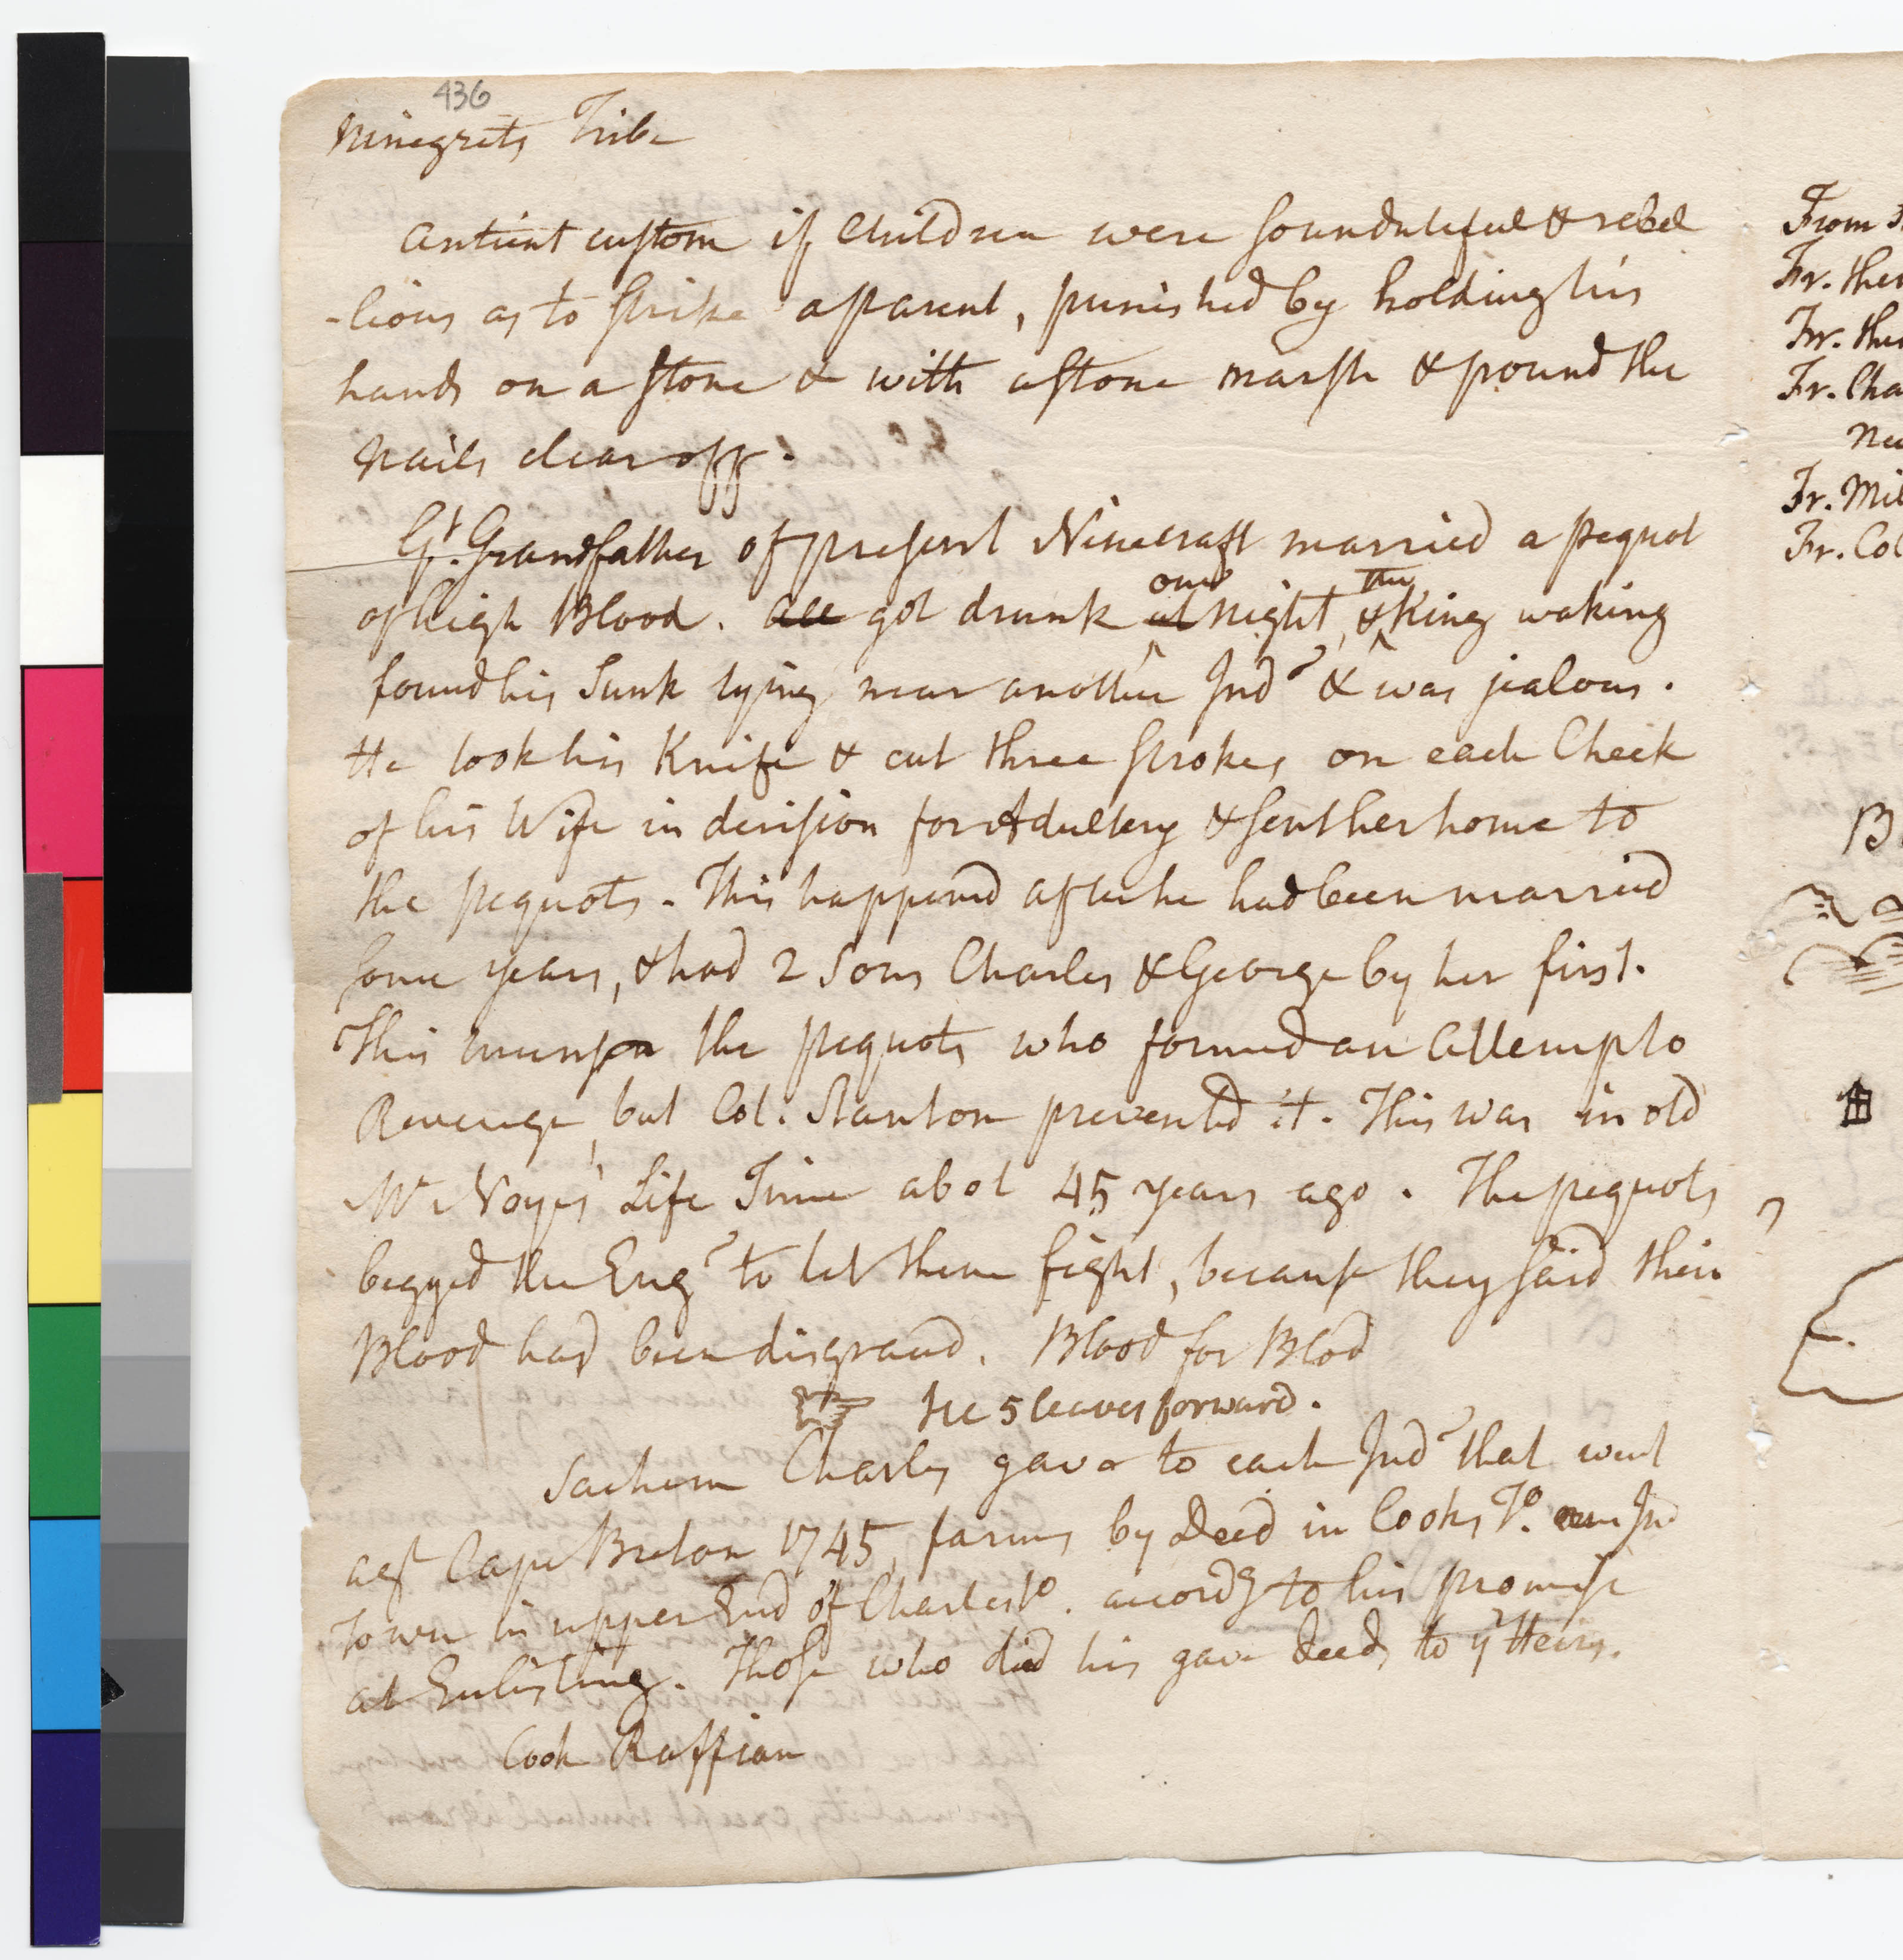 436
Ninegrets Tribe
Antient custom if Children were so undutiful & rebel
-lious as to strike a parent, punished by holding his
hands on a stone & with a stone marsh & pound the
Nails clear off.
Gt. Grandfather of present Ninecraft married a pequot
of high Blood. All got drunk at one Night, & the King waking
found his Sunk lying near another Indn & was jealous.
He took his Knife & cut three strokes on each Cheek
of his Wife in derision for Adultery & sent her home to
the pequots. This happened after he had been married
some years, & had 2 Sons Charles & George by her first.
This the pequots who formed an Attempt to
Revenge, but Col. Stanton prevented it. This was in old
Mr Noyes' Life Time abot 45 years ago. The pequots
begged the Engh to let them fight, because they said their
Blood had been disgraced. Blood for Blod
☞ see 5 leaves forward.
Sachem Charles gave to each Indn that went
agst Cape Breton 1745, farms by Deed in Cooks To. Ind
Town in upper End of Charlesto. accordg to his promise
at Enlisting. Those who died his gave Deeds to yr Heirs.
Cook Raffian
From
Fr.
Fr.
Fr. Cha
Fr. Mil
Fr. Col
B